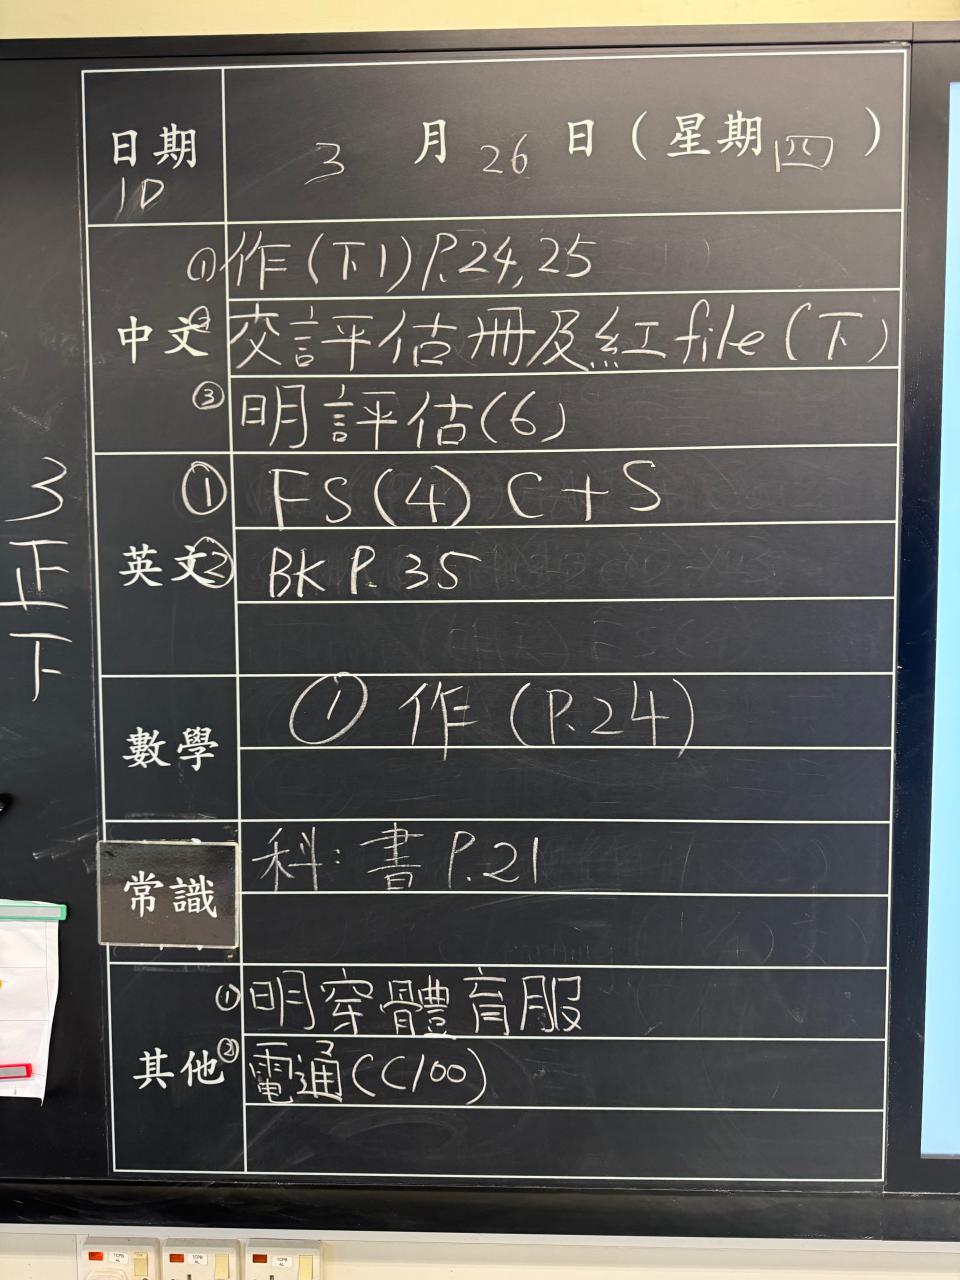 日期 3月26日（星期四）
1D
中文
① 作(下1)P.24,25
② 交評估冊及紅file(下)
③ 明評估(6)
英文
① FS(4) C+S
② BK P.35
數學
① 作(P.24)
常識
科:書P.21
其他
① 明穿體育服
② 電通(CC100)
3
正
下